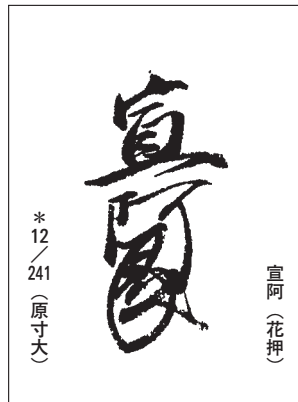 宣阿（花押）
宣阿
＊12／241（原寸大）